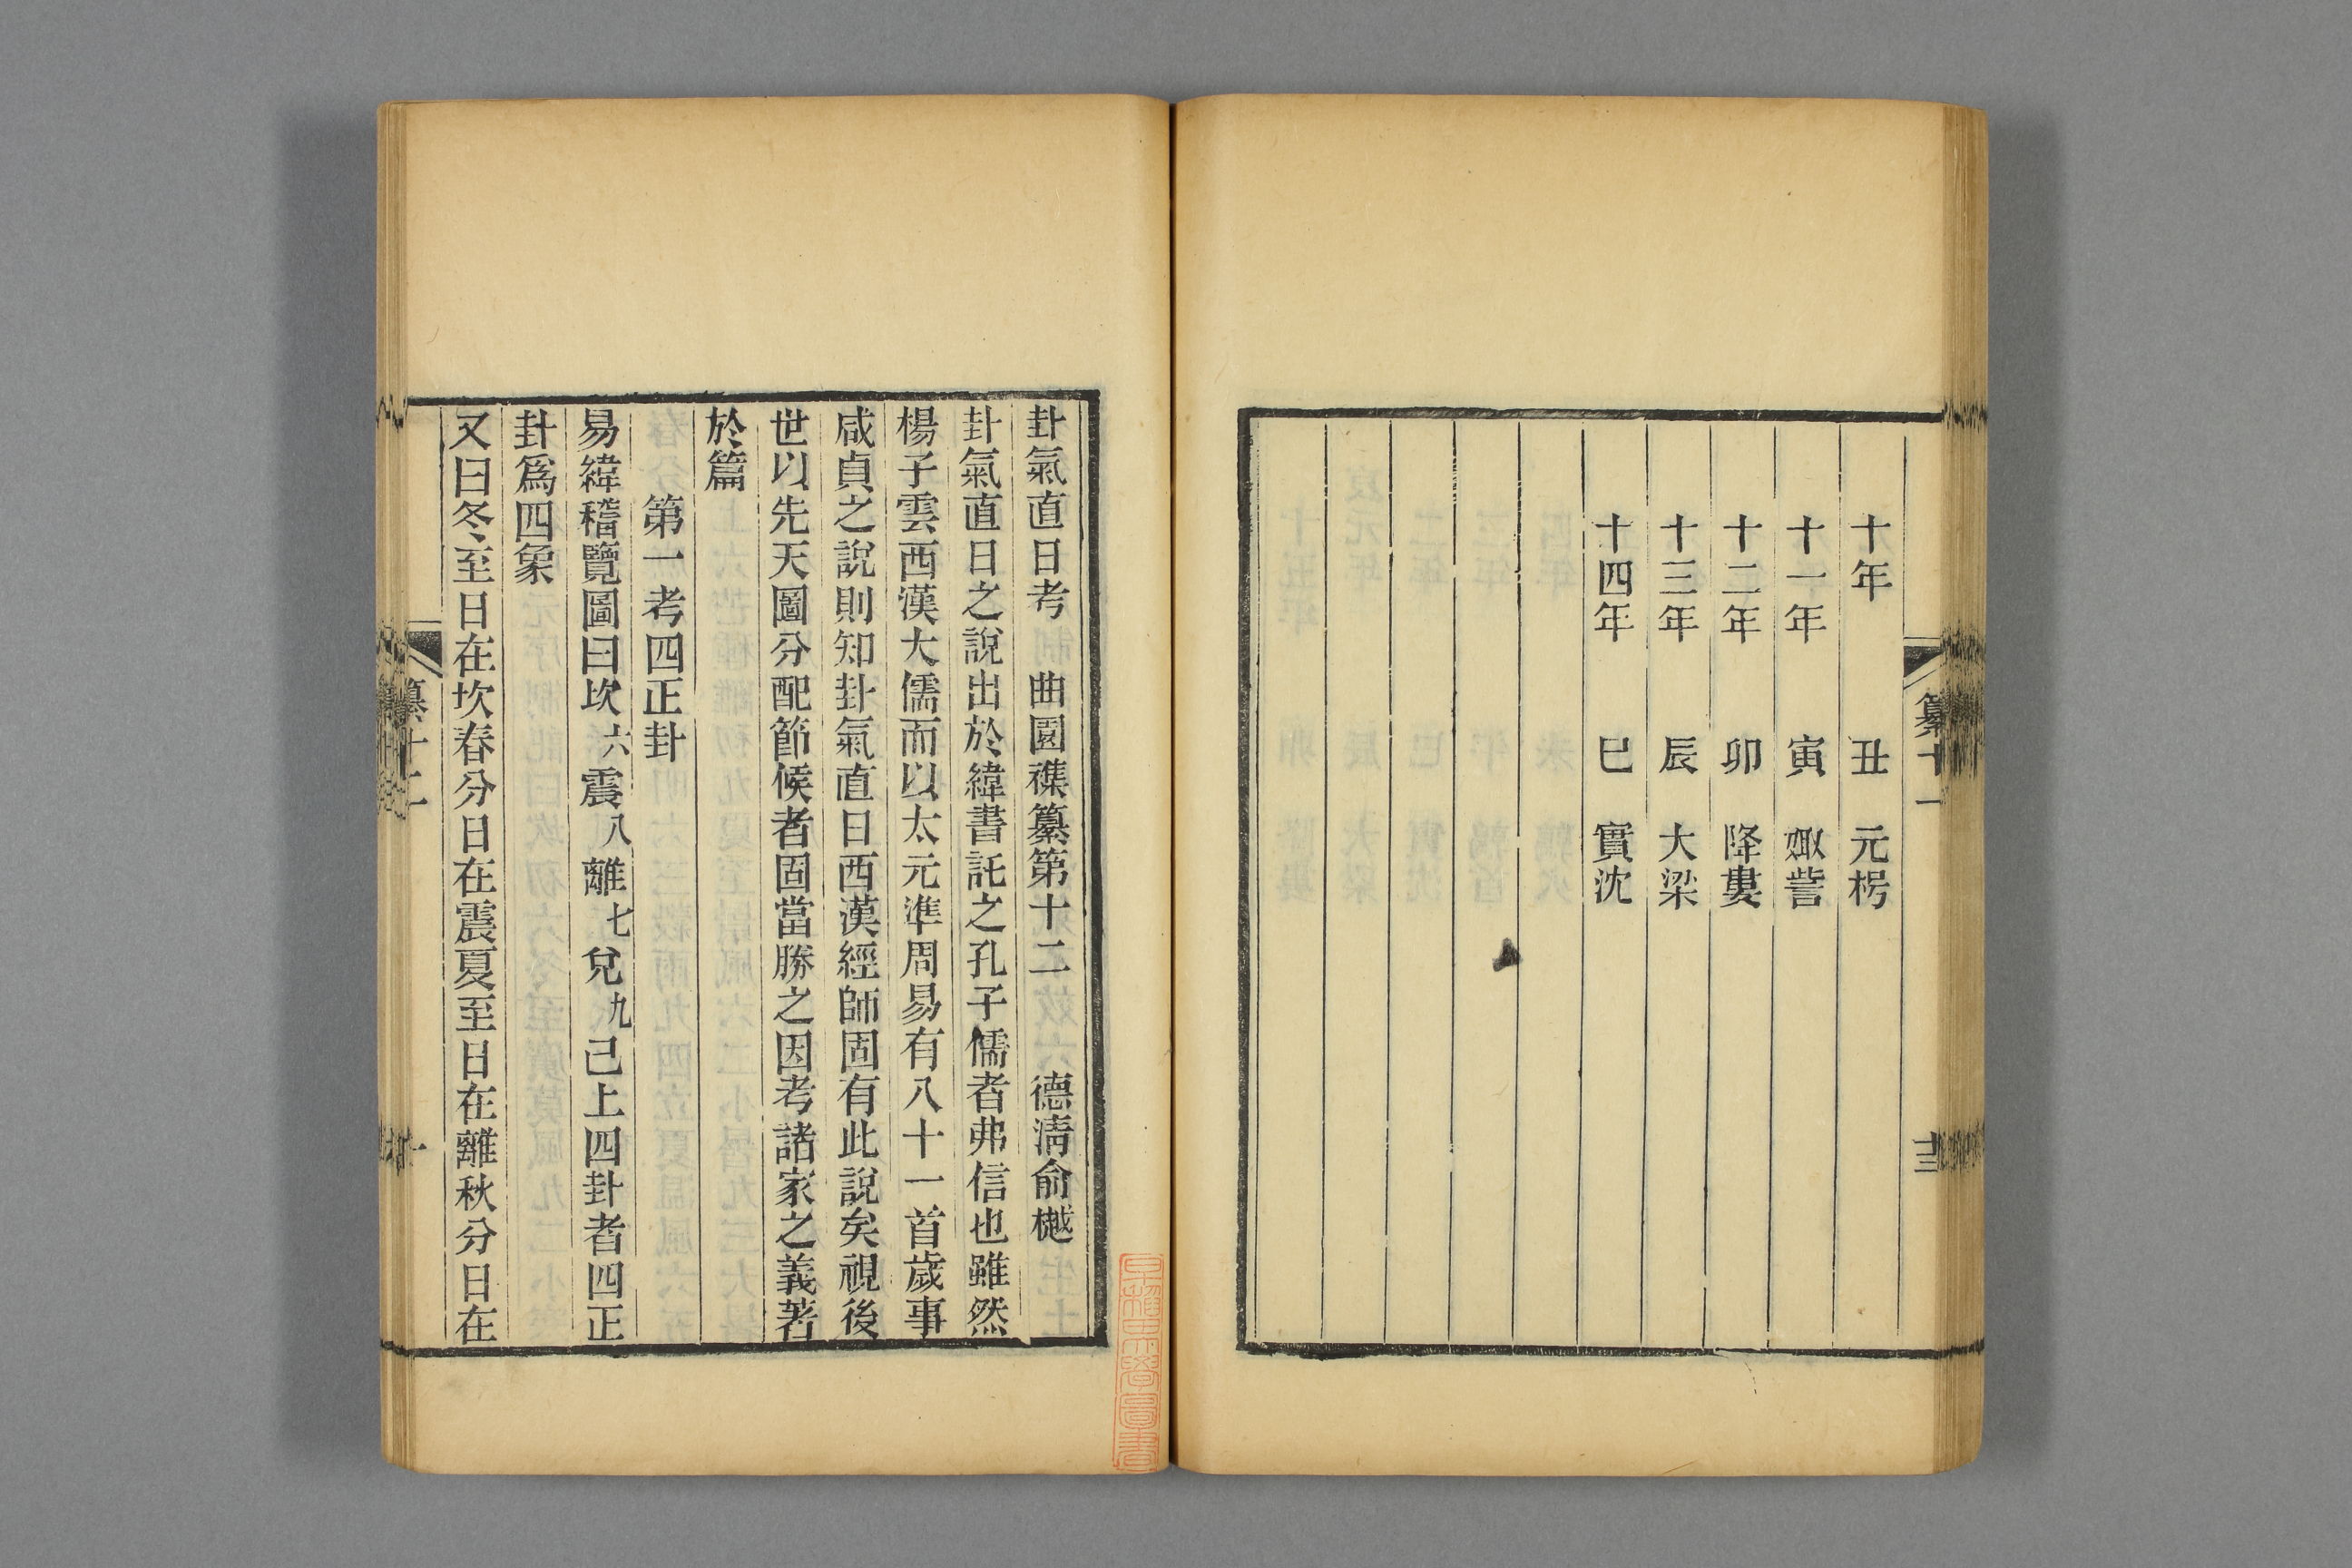 十年　丑　元枵
十一年　寅　娵訾
十二年　卯　降婁
十三年　辰　大梁
十四年　巳　實沈
纂十一
十三
卦氣直日考　曲園襍纂第十二　德淸俞樾
卦氣直日之說出於緯書託之孔子儒者弗信也雖然
楊子雲西漢大儒而以太元準周易有八十一首歲事
咸貞之說則知卦氣直日西漢經師固有此說矣視後
世以先天圖分配節候者固當勝之因考諸家之義著
於篇
第一考四正卦
易緯稽覽圖曰坎六震八離七兌九己上四卦者四正
卦爲四象
又曰冬至日在坎春分日在震夏至日在離秋分日在
纂十二
一
早稻田大學圖書